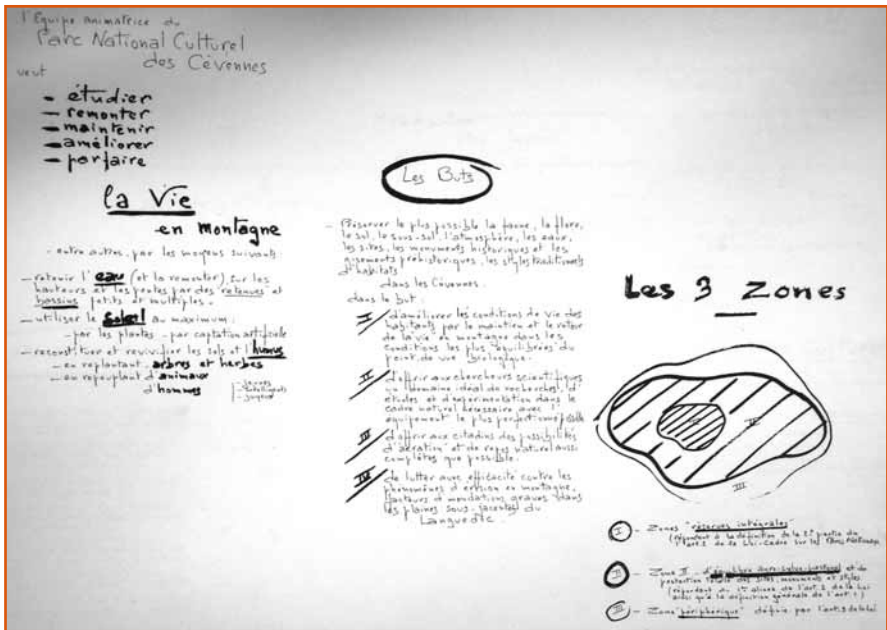 l'Equipe animatrice du
Parc National Culturel
des Cévennes
veut
- étudier
- remonter
- maintenir
- améliorer
- parfaire
la Vie
en montagne
- entre autres, par les moyens suivants:
- retenir l'eau (et la remonter), sur les
hauteurs et les pentes par des retenues et
bassins petits et multiples.
- utiliser le Soleil au maximum:
- par les plantes - par captation artificielle
- reconstituer et revivifier les sols et l'humus
- en replantant arbres et herbes
- en repeuplant d'animaux
d'hommes
- jeunes
- intelligents
Les Buts
- Préserver le plus possible la faune, la flore,
le sol, le sous-sol, l'atmosphère, les eaux,
les sites, les monuments historiques et les
gisements préhistoriques, les styles traditionnels
d'habitats
dans les Cévennes.
dans le but:
I d'améliorer les conditions de vie des
habitants par le maintien et le retour
de la vie en montagne dans les
conditions les plus équilibrées du
point de vue biologique.
II d'offrir aux chercheurs scientifiques
un domaine idéal de recherches, d'
études et d'expérimentation dans le
cadre naturel nécessaire avec l'
équipement le plus perfectionné possible
III d'offrir aux citadins des possibilités
d'aération et de repos naturel aussi
complètes que possible.
IV de lutter avec efficacité contre les
phénomènes d'érosion en montagne,
facteurs d'inondations graves dans
les plaines sous-jacentes du
Languedoc.
Les 3 Zones
I
II
III
I - Zones "réserves intégrales"
(répondant à la définition de la 2e partie de
l'art. 2 de la Loi-Cadre sur les Parcs Nationaux
II - Zone II - d'équilibre agro-sylvo-pastoral et de
protection totale des sites, monuments et styles
(répondant au 1er alinea de l'art. 2 de la Loi
ainsi qu'à la définition générale de l'art. 1)
III - Zone "périphérique" définie par l'art. 3 de la loi